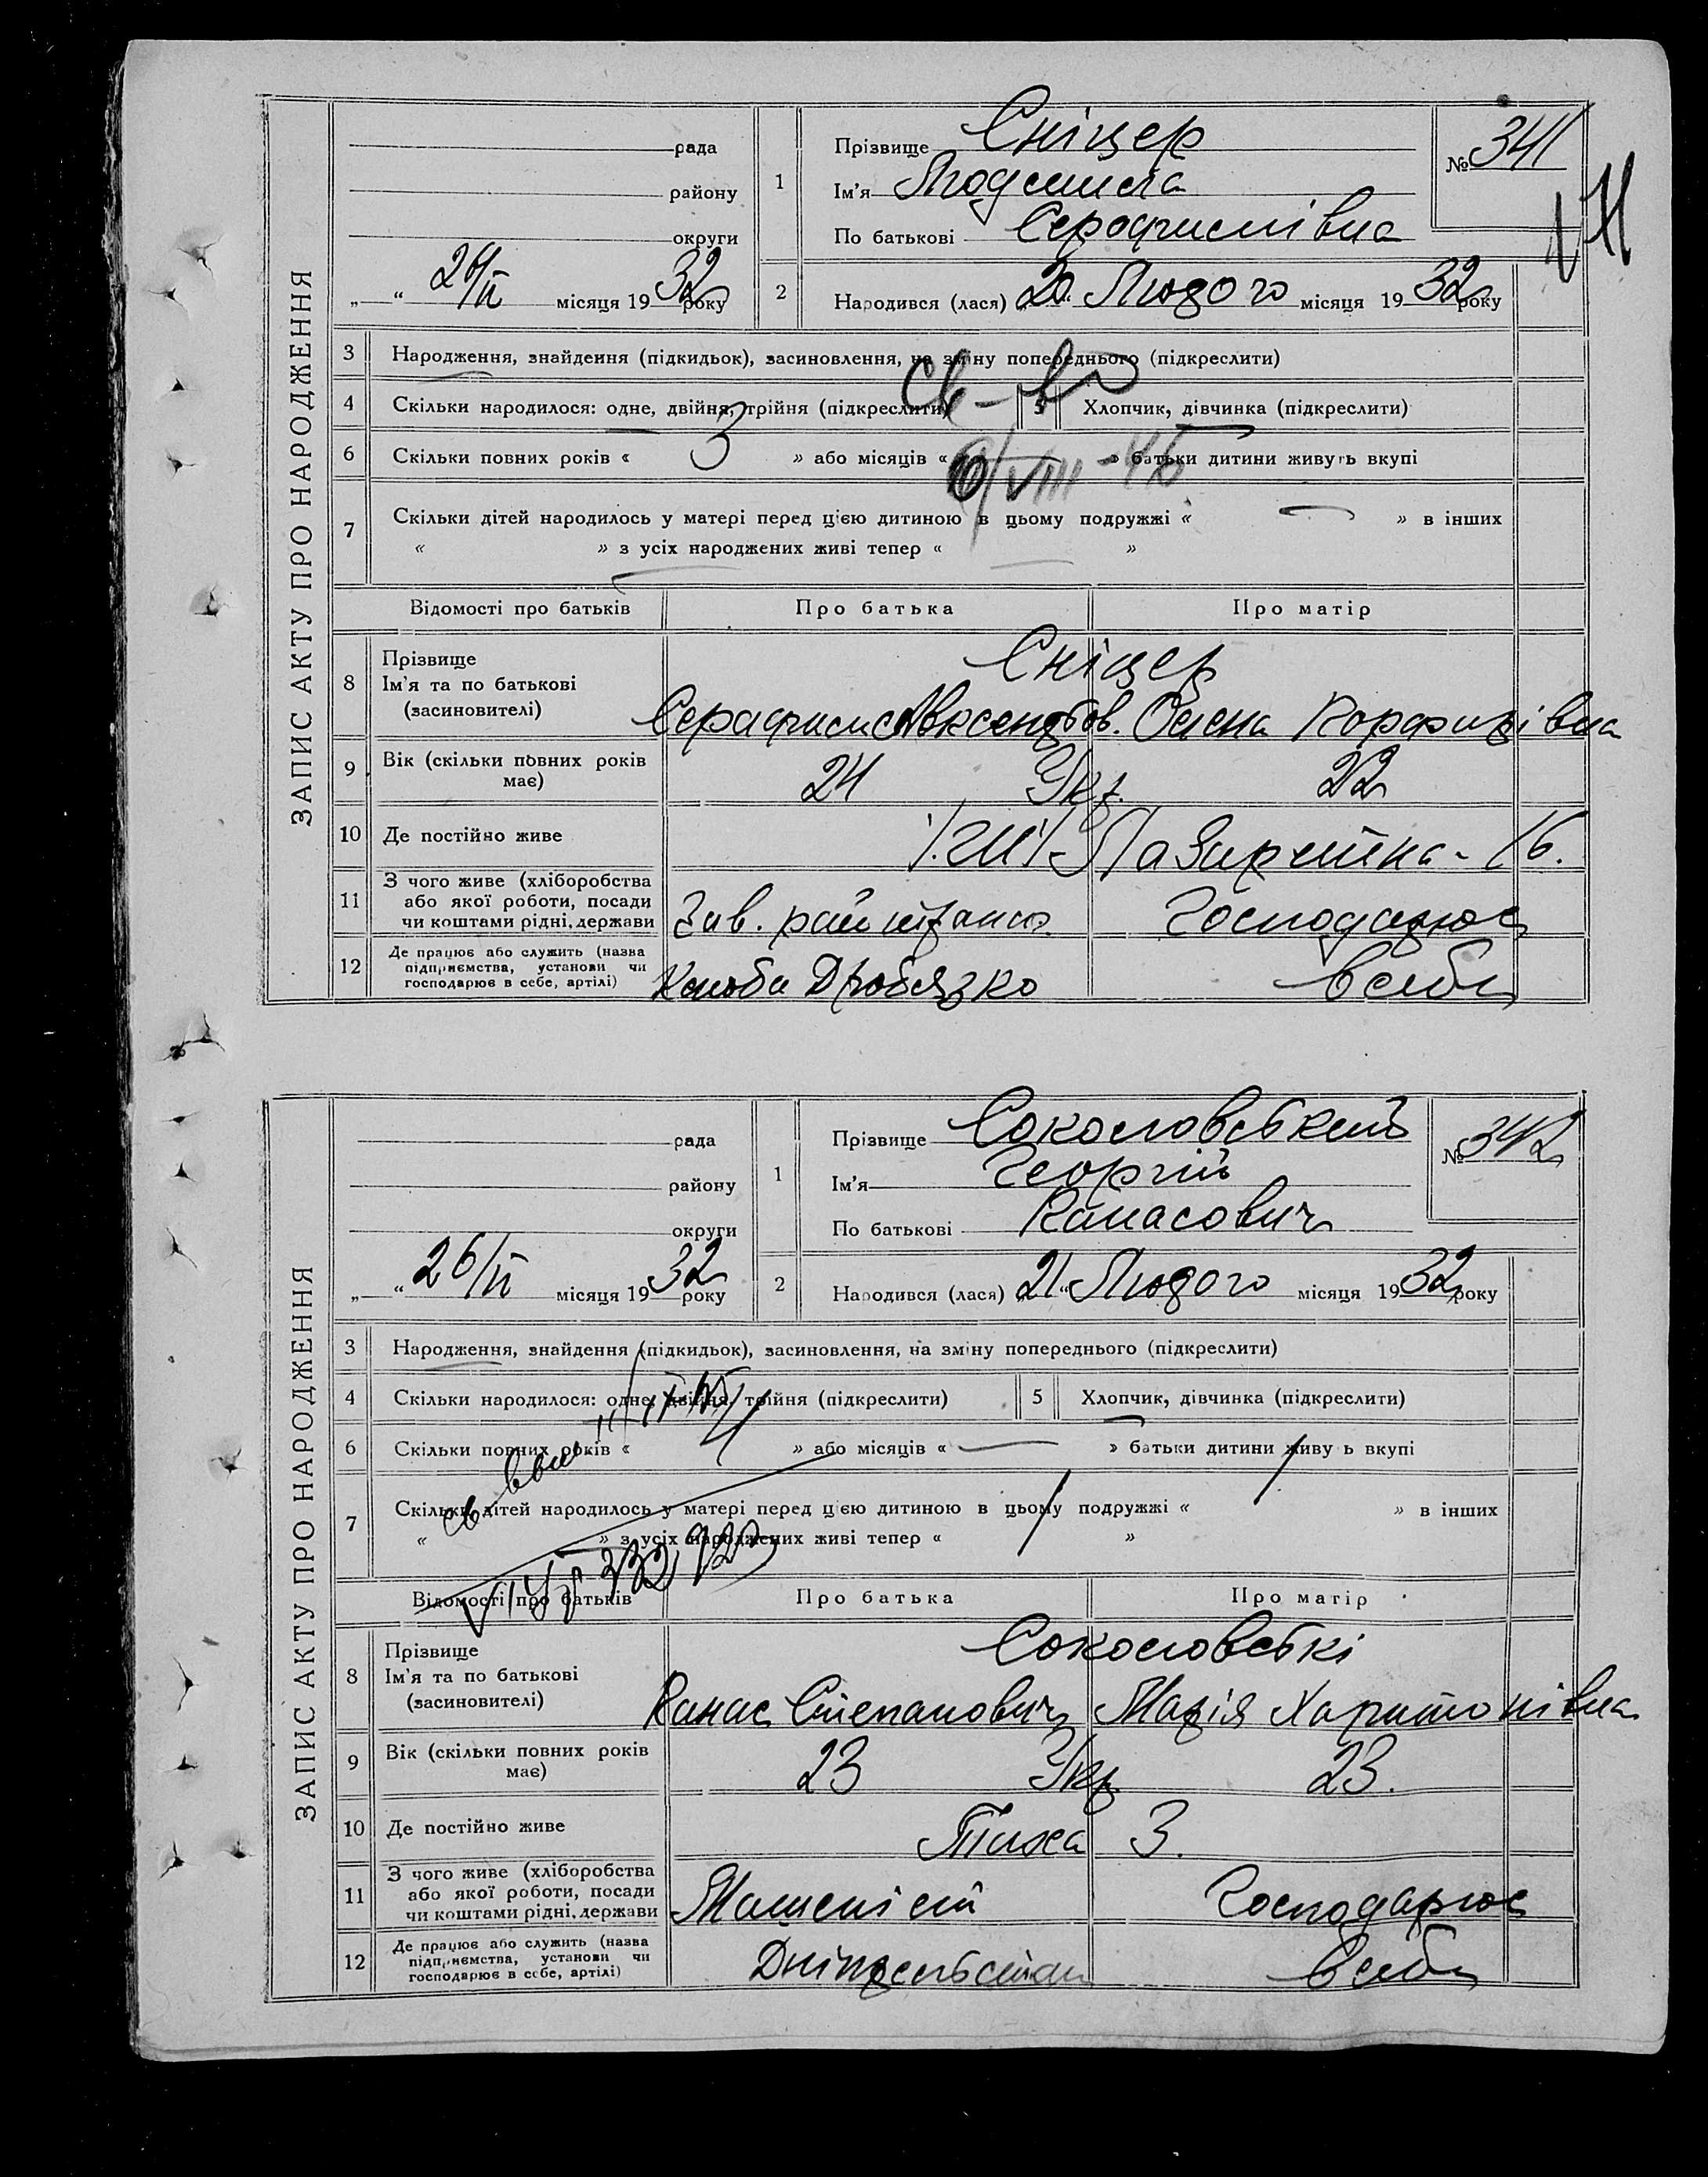 ЗАПИС АКТУ ПРО НАРОДЖЕННЯ
рада
району
округи
„ “ 26/II місяця 1932 року
1
Прізвище Сніцер
Ім'я Людмила
По батькові Серафимівна
№ 341
2
Народився (лася) „20“ Лютого місяця 1932 року
3 Народження, знайдення (підкидьок), засиновлення, на зміну попереднього (підкреслити)
4 Скільки народилося: одне, двійня, трійня (підкреслити)
5 Хлопчик, дівчинка (підкреслити)
св-во
6 Скільки повних років « 3 » або місяців « » батьки дитини живуть вкупі
/VIII-45
7 Скільки дітей народилось у матері перед цією дитиною в цьому подружжі « — » в інших
« » з усіх народжених живі тепер « »
Відомості про батьків Про батька Про матір
8 Прізвище
Ім'я та по батькові
(засиновителі)
Сніцер
Серафим Авксентьов. Олена Порфирівна
9 Вік (скільки повних років має) 24 Укр. 22
10 Де постійно живе 16.
11 З чого живе (хліборобства або якої роботи, посади чи коштами рідні, держави Зав. Господарює
12 Де працює або служить (назва підприємства, установи чи господарює в себе, артілі) Дробязко в себе
ЗАПИС АКТУ ПРО НАРОДЖЕННЯ
рада
району
округи
„ “ 26/II місяця 1932 року
1
Прізвище Соколовський
Ім'я Георгій
По батькові Панасович
№ 342
2
Народився (лася) „21“ Лютого місяця 1932 року
3 Народження, знайдення (підкидьок), засиновлення, на зміну попереднього (підкреслити)
4 Скільки народилося: одне, двійня, трійня (підкреслити)
5 Хлопчик, дівчинка (підкреслити)
6 Скільки повних років « 4 » або місяців « — » батьки дитини живуть вкупі
7 Скільки дітей народилось у матері перед цією дитиною в цьому подружжі « » в інших
« » з усіх народжених живі тепер « »
Відомості про батьків Про батька Про матір
8 Прізвище
Ім'я та по батькові
(засиновителі)
Соколовські
Панас Степанович Марія Харитонівна
9 Вік (скільки повних років має) 23 Укр. 23.
10 Де постійно живе Тиха 3.
11 З чого живе (хліборобства або якої роботи, посади чи коштами рідні, держави Машиніст Господарює
12 Де працює або служить (назва підприємства, установи чи господарює в себе, артілі) в себе